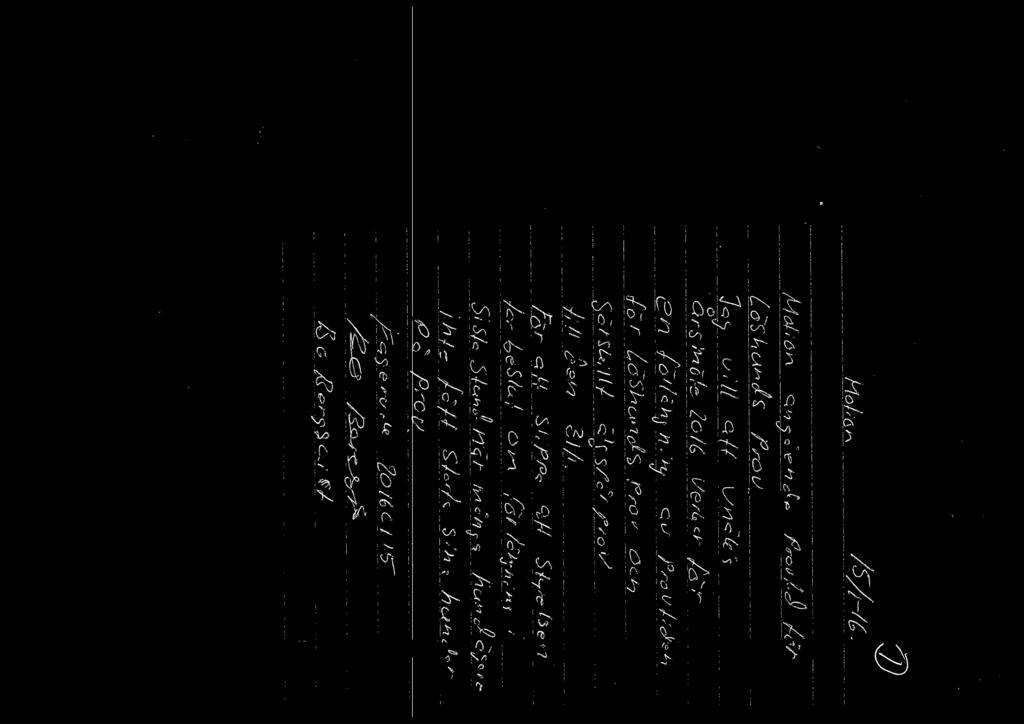 ①
Motion 15/1-16.
Motion angående Provtid för
Löshunds prov
Jag vill att VnäKs
Årsmöte 2016 verkar för
en förlängning av Provtiden
för Löshunds prov och
Särskillt älgspårprov
till den 31/1.
För att slippa att Styrelsen
tar beslut om förlängning i
Sista Stund när många hundägare
inte fått starta sina hundar
På prov.
2016 01 15
Bo